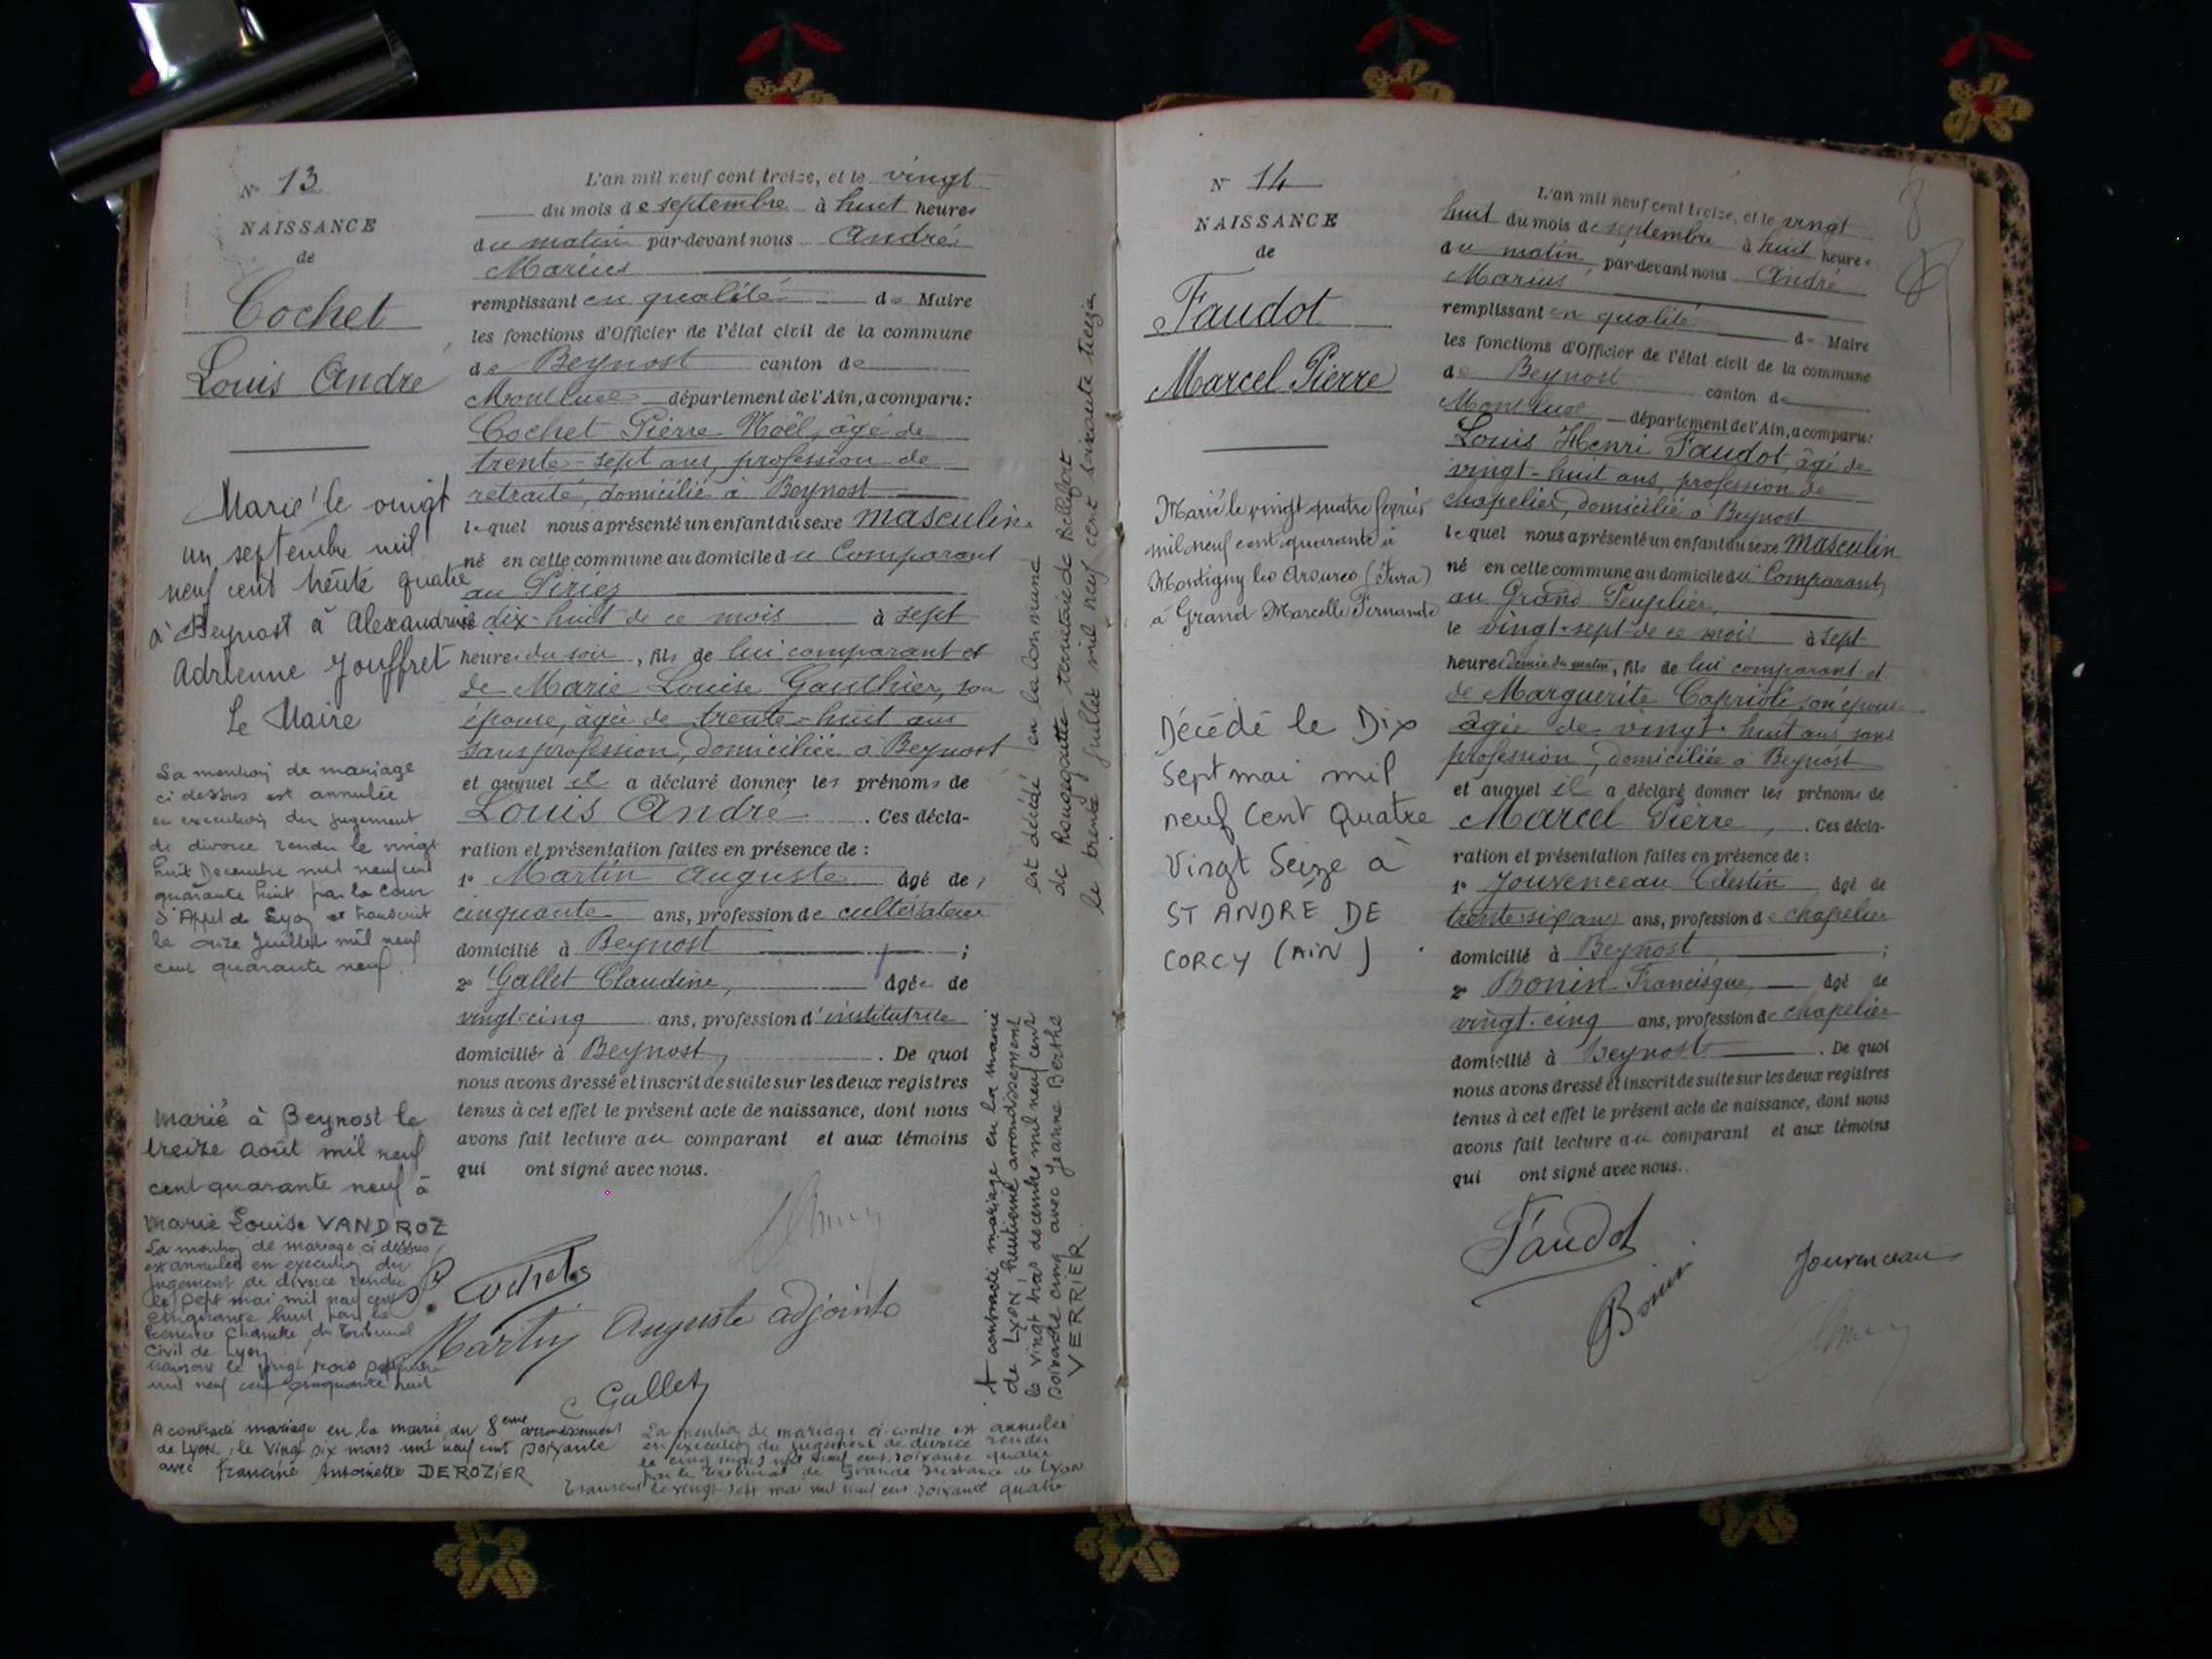 N° 13
NAISSANCE
de
Cochet
Louis André
Marié le vingt
un septembre mil
neuf cent trente quatre
à Beynost à Alexandrine
Adrienne Jouffret
Le Maire
La mention de mariage
ci dessus est annulée
en execution du jugement
de divorce rendu le vingt
huit Decembre mil neuf cent
quarante huit par la Cour
d'Appel de Lyon et transcrit
le onze Juillet mil neuf
cent quarante neuf.
Marié à Beynost le
treize Août mil neuf
cent quarante neuf à
Marie Louise VANDROZ
La mention de mariage ci dessus
est annulée en execution du
jugement de divorce rendu
le sept mai mil neuf cent
cinquante huit par la
Première Chambre du Tribunal
Civil de Lyon
transcrit le vingt trois septembre
mil neuf cent cinquante huit
A contracté mariage en la mairie du 8eme arrondissement
de Lyon, le Vingt six mars mil neuf cent soixante
avec Francine Antoinette DEROZIER
L'an mil neuf cent treize, et le vingt
du mois de septembre à huit heures
du matin par-devant nous André
Marius
remplissant en qualité de Maire
les fonctions d'Officier de l'état civil de la commune
de Beynost canton de
Montluel département de l'Ain, a comparu:
Cochet Pierre Noël, âgé de
trente-sept ans, profession de
retraité, domicilié à Beynost
lequel nous a présenté un enfant du sexe masculin
né en cette commune au domicile du Comparant
au Péricz
le dix-huit de ce mois à sept
heures du soir, fils de lui comparant et
de Marie Louise Gauthier, son
épouse, âgée de trente-huit ans
sans profession, domiciliée à Beynost
et auquel il a déclaré donner les prénoms de
Louis André . Ces décla-
ration et présentation faites en présence de :
1° Martin Auguste âgé de
cinquante ans, profession de cultivateur
domicilié à Beynost ;
2° Gallet Claudine, âgée de
vingt-cinq ans, profession d'institutrice
domiciliée à Beynost, . De quoi
nous avons dressé et inscrit de suite sur les deux registres
tenus à cet effet le présent acte de naissance, dont nous
avons fait lecture au comparant et aux témoins
qui ont signé avec nous.
P. Cochet
Martin Auguste adjoint
C Gallet
La mention de mariage ci-contre est annulée
en execution du jugement de divorce rendu
le cinq mars mil neuf cent soixante quatre
par le Tribunal de Grande Instance de LYON
Transcrit le vingt sept mai mil neuf cent soixante quatre
A contracté mariage en la mairie
de LYON, huitième arrondissement
le vingt trois decembre mil neuf cent
soixante cinq avec Jeanne Berthe
VERRIER
est décédé en la commune
de Rougegoutte territoire de Belfort
le trente juillet mil neuf cent soixante treize
N° 14
NAISSANCE
de
Faudot
Marcel Pierre
Marié le vingt quatre février
mil neuf cent quarante à
Montigny les Arsures (Jura)
à Grand Marcelle Fernande
Décédé le Dix
Sept mai mil
neuf Cent Quatre
Vingt Seize à
ST ANDRE DE
CORCY (AIN)
L'an mil neuf cent treize, et le vingt
huit du mois de septembre à huit heures
du matin par-devant nous André
Marius
remplissant en qualité de Maire
les fonctions d'Officier de l'état civil de la commune
de Beynost canton de
Montluel département de l'Ain, a comparu:
Louis Henri Faudot, âgé de
vingt-huit ans, profession de
chapelier, domicilié à Beynost
lequel nous a présenté un enfant du sexe masculin
né en cette commune au domicile du Comparant,
au Grand Peuplier,
le vingt-sept de ce mois à sept
heures demie du matin, fils de lui comparant et
de Marguerite Caprioli son épouse
âgée de vingt-huit ans sans
profession, domiciliée à Beynost
et auquel il a déclaré donner les prénoms de
Marcel Pierre, . Ces décla-
ration et présentation faites en présence de :
1° Jouvenceau Célestin âgé de
trente six ans ans, profession de chapelier
domicilié à Beynost ;
2° Bonin Francisque, âgé de
vingt-cinq ans, profession de chapelier
domicilié à Beynost . De quoi
nous avons dressé et inscrit de suite sur les deux registres
tenus à cet effet le présent acte de naissance, dont nous
avons fait lecture au comparant et aux témoins
qui ont signé avec nous.
Faudot
Bonin
Jouvenceau